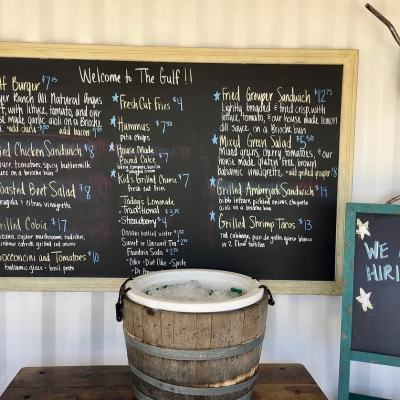 Welcome to The Gulf!!
lf Burger $7.75
yer Ranch All Natural Angus
with lettuce, tomato, and our
house made garlic aioli on a Brioche
add bacon
ried Chicken Sandwich $8
pickles, onions, spicy buttermilk
sauce on a bun
oasted Beet Salad $8
arugula & citrus vinaigrette
rilled Cobia $17
oyster mushrooms, radishes,
grilled red onion
occoncini and Tomatoes $10
balsamic glaze & basil pesto
Fresh Cut Fries $4
Hummus $7.75
pita chips
House Made
Pound Cake $7
Kid's Grilled Cheese $7
fresh cut fries
Todays Lemonade
-Traditional $3.75
-Strawberry $4
Dasani bottled water $2.50
Sweet or Unsweet Tea $2.50
Fountain Soda
-Coke -Diet Coke -Sprite
-Dr.
Fried Grouper Sandwich $12.75
Lightly breaded & fried crisp with
lettuce, tomato, & our house made lemon
dill sauce on a Brioche bun
Mixed Green Salad $5.50
Mixed greens, cherry tomatoes, & our
house made, gluten free, brown
balsamic vinaigrette -add grilled grouper $8
Grilled Amberjack Sandwich $14
bibb lettuce, pickled onions, chipotle
aioli on a brioche bun
Grilled Shrimp Tacos $13
red cabbage, pico de gallo, queso blanco
in 2 flour tortillas
WE
HIRI